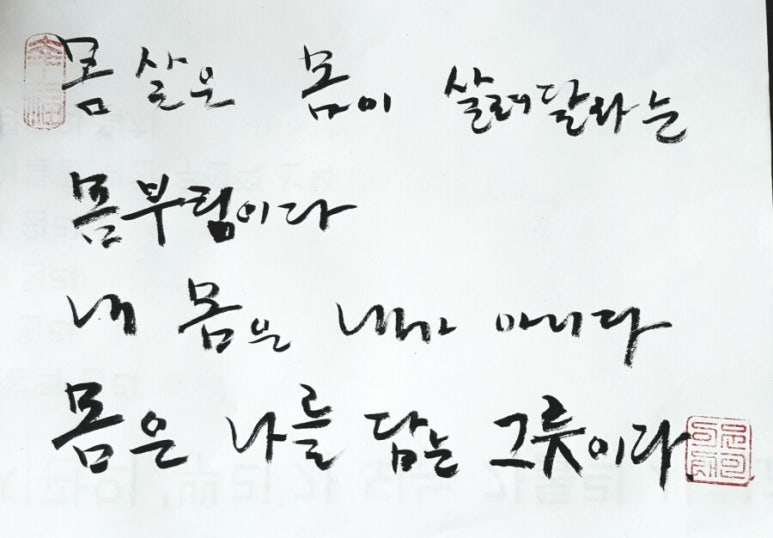 몸 살은 몸이 살려달라는
몸부림이다
내 몸은 내가 아니다
몸은 나를 담는 그릇이다